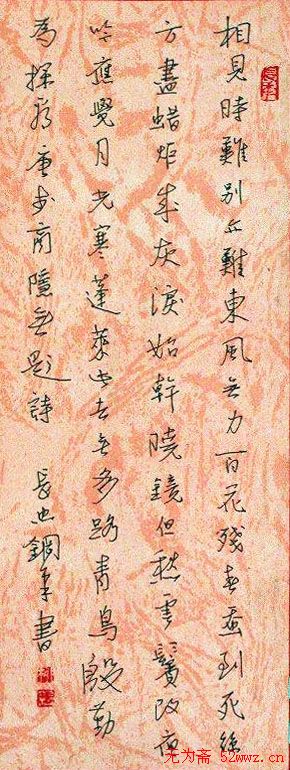 相見時難別亦難東風無力百花殘春蚕到死絲
方盡蜡炬成灰淚始幹曉鏡但愁雲鬢改夜
吟應覺月光寒蓬萊此去無多路青鳥殷勤
為探看 商隱無題詩 鋼筆書
无为斋 52wwz.cn